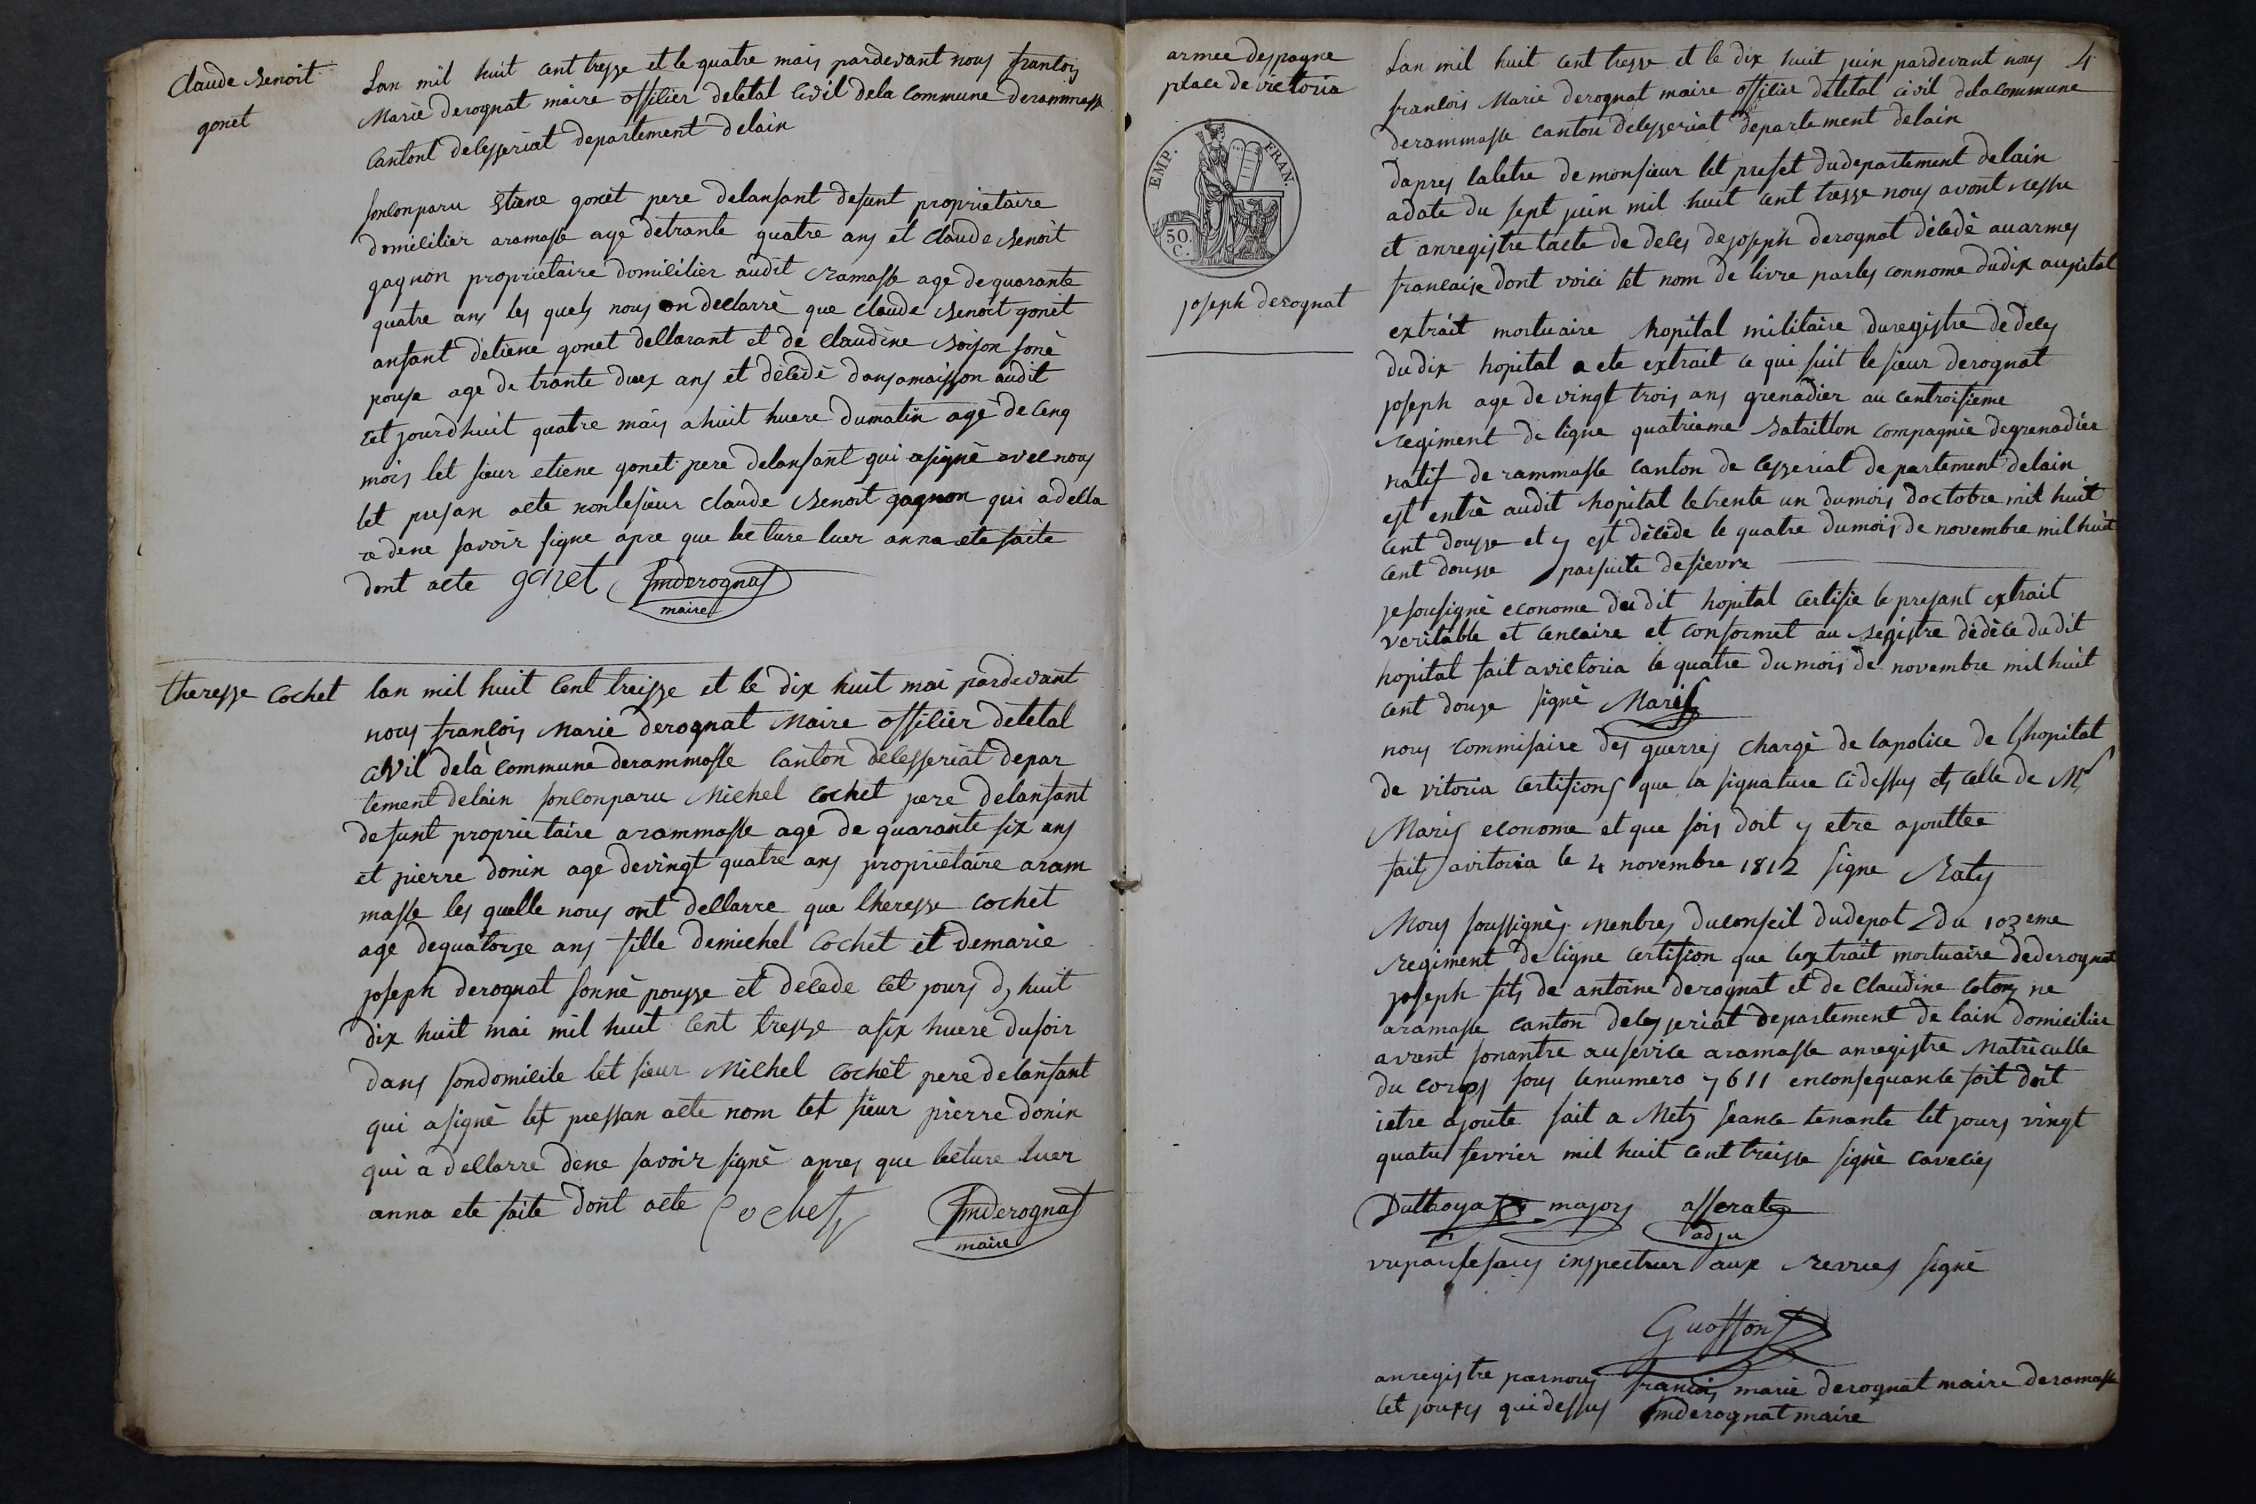 Claude Benoit
gonet
Lan mil huit cent tresse et le quatre mais pardevant nous francois
Marie derognat maire offilier deletal Civil dela Commune derammasse
Cantont delesseriat departement delain
sonlonparu Etiene gonet pere delanfant defunt proprietaire
domicilier aramasse age detrante quatre ans et Claude Benoit
gagnon proprietaire domicilier audit ramasse age dequarante
quatre ans les quels nous on declarré que Claude Benoit gonet
anfant detiene gonet dellarant et de Claudine Boison sone
pouse age de trante duex ans et décédé dansamaisson audit
cet jourdhuit quatre mais a huit huere dumatin agé de Cenq
mois let sieur etiene gonet pere delanfant qui asigné avecnous
let presan acte nonlesieur Claude Benoit gagnon qui adella
re dene savoir signe apre que lecture luer anna ete faite
dont acte gonet fmderognat
maire
theresse Cochet
lan mil huit Cent treisse et le dix huit mai pardevant
nous francois Marie derognat Maire offilier deletal
Civil dela Commune derammasse Canton delesseriat depar
tement delain sonlonparu Michel Cochet pere delanfant
defunt proprietaire arammasse age de quarante six ans
et pierre donin age devingt quatre ans proprietaire aram
masse les quelle nous ont dellarre que theresse Cochet
age dequatorze ans fille demichel Cochet et demarie
joseph derognat sonné pousse et decede Cet jours d, huit
dix huit mai mil huit Cent tresse asix huere dusoir
dans sondomicile let sieur Michel Cochet pere delanfant
qui asigné let pressan acte nom let sieur pierre donin
qui a dellarre dene savoir signé apres que lecture luer
anna ete faite dont acte Cochet fmderognat
maire
armee despagne
place de victoria
EMP. FRAN.
50 C.
joseph derognat
4
Lan mil huit Cent tresse et le dix huit juin pardevant nous
francois Marie derognat maire offilier deletal civil delacommune
derammasse canton delesseriat departement delain
dapres laletre de monsieur let prefet dudepartement delain
adate du sept juin mil huit cent tresse nous avont ressu
et anregistre lacte de deces dejoseph derognat décédé auarmes
francaise dont voici let nom de livre parles connome dudix aupital
extrait mortuaire hopital militaire duregistre dedeces
dudix hopital a ete extrait ce qui suit le sieur derognat
joseph age de vingt trois ans grenadier au centroisieme
regiment de ligne quatrieme Bataillon compagnie degrenadier
natif de rammasse canton de cesseriat departement delain
est entré audit hopital le trente un dumois doctobre mil huit
cent dousse et y est décédé le quatre dumois de novembre mil huit
cent dousse parsuite de fievre
jesousigné econome dudit hopital certifie le presant extrait
veritable et cencaire et conformet au registre dédéce dudit
hopital fait avictoria le quatre dumois de novembre mil huit
cent douze signé Maris
nous commisaire des guerres chargé de lapolice de lhopital
de vitoria certifions que la signature ci dessus es celle de Mr
Maris econome et que fois doit y etre ajouttee
fait avitoria le 4 novembre 1812 signe Raty
Nous soussignés menbres duconseil dudepot du 103eme
regiment de ligne certifion que lextrait mortuaire dederognat
joseph fils de antoine derognat et de Claudine coton ne
aramasse canton delesseriat departement de lain domicilier
avant sonantre auservice aramasse anregistre Matriculle
du corps sous lenumero 7611 enconsequanle foit doit
ietre ajoute fait a Metz seance tenante let jours vingt
quatre fevrier mil huit cent treisse signé cavelies
Duttroya majors asserat
adju
vuparlesous inspectuer aux revues signé
Guosson
anregistre parnous francois marie derognat maire deramasse
let jours qui dessus fmderognat maire